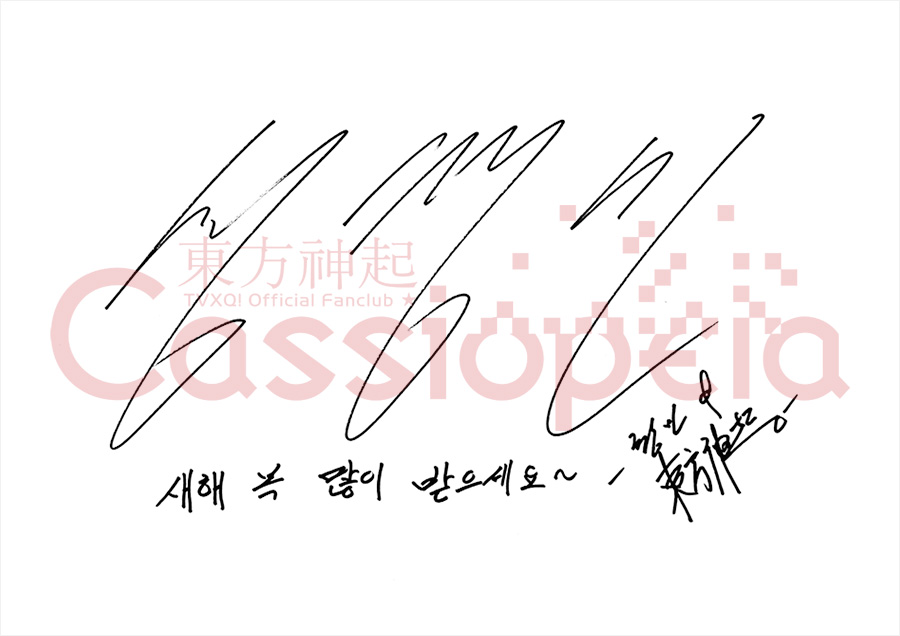 東方神起
TVXQ! Official Fanclub ★
Cassiopeia
새해 복 많이 받으세요~
東方神起